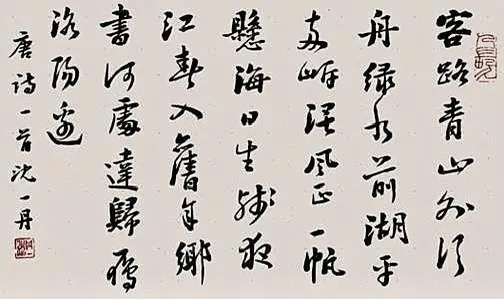 客路青山外行
舟绿水前湖平
两岸阔风正一帆
懸海日生残夜
江春入舊年鄉
書何處達歸雁
洛陽邊
唐诗一首沈一丹